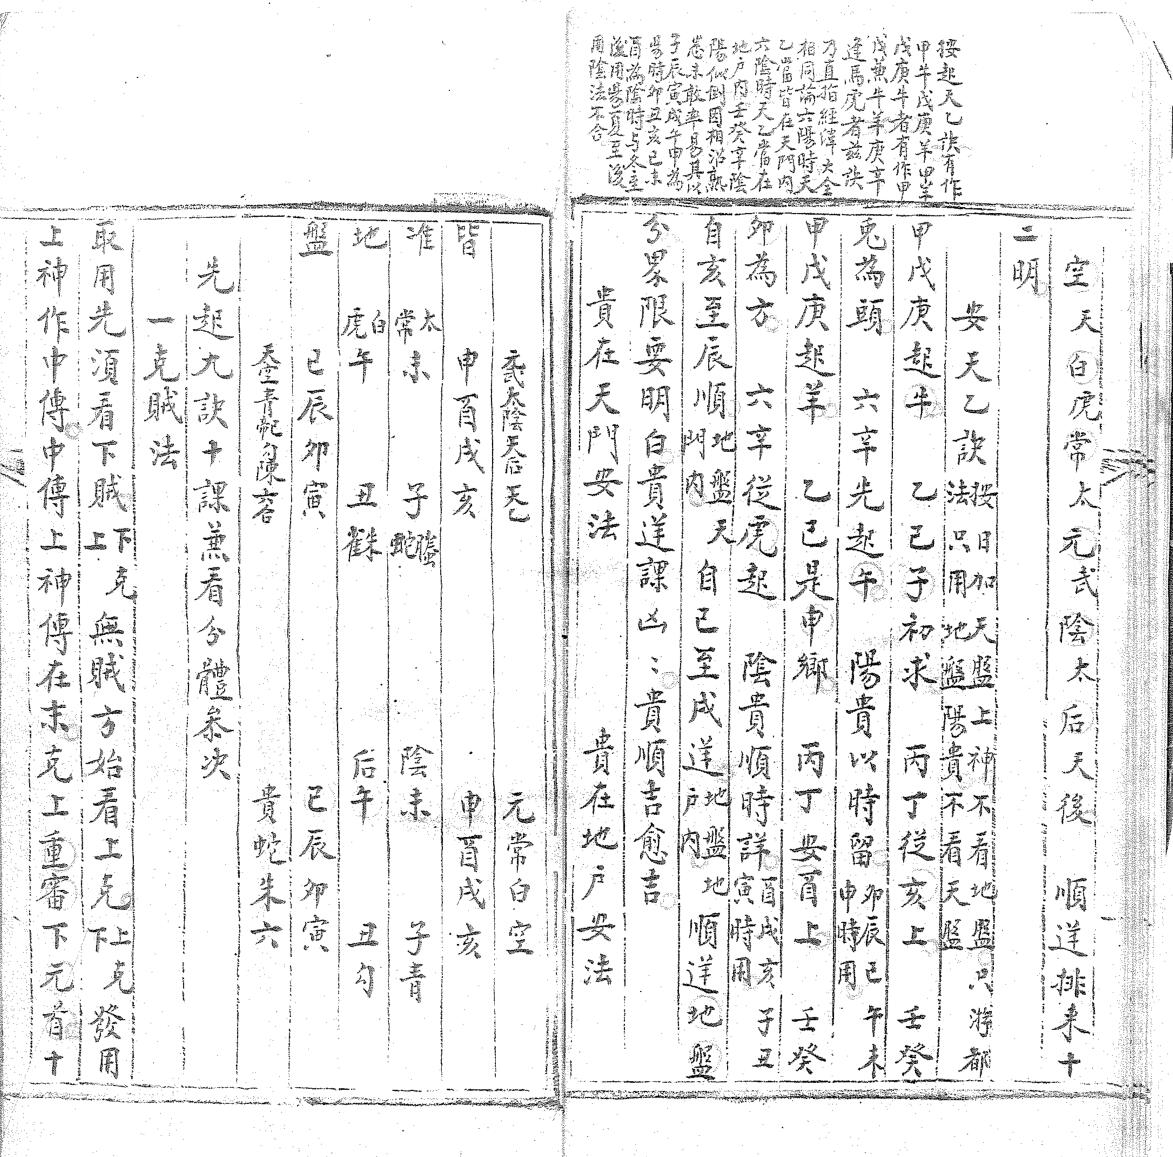 按起天乙訣有作
甲牛戊庚羊甲羊
戊庚牛者有作甲
戊兼牛羊庚辛
逢馬虎者兹訣
乃直指經緯大全
相同論六陽時天
乙當皆在天門內
六陰時天乙當在
地户內壬癸辛陰
陽似倒因相沿熟
悉未敢率易其以
子辰寅戌午申為
陽時卯丑亥巳未
酉為陰時与冬至
後用陽夏至後
用陰法不合
空天白虎常太元武陰太后天後　順逆排来十
二明
安天乙訣按日加天盤上神不看地盤只游都
法只用地盤陽貴不看天盤
甲戊庚起牛　乙己子初求　丙丁從亥上　壬癸
兎為頭　六辛先起午　陽貴以時留卯辰巳午未
申時用
甲戊庚起羊　乙己是申鄉　丙丁安酉上　壬癸
卯為方　六辛從虎起　陰貴順時詳酉戌亥子丑
寅時用
自亥至辰順地盤天門內自巳至戌逆地盤地户內順逆地盤
分界限要明白貴逆課凶凶貴順吉愈吉
貴在天門安法　貴在地户安法
元武太陰天后天乙　元常白空
皆　申酉戌亥　申酉戌亥
准　太常未　子螣蛇　陰未　子青
地　白虎午　丑朱雀　后午　丑勾
盤　巳辰卯寅　巳辰卯寅
天空青龍勾陳六合　貴蛇朱六
先起九訣十課兼看分體叅决
一克賊法
取用先須看下賊下克上無賊方始看上克上克下發用
上神作中傳中傳上神傳在末克上重審下元首十